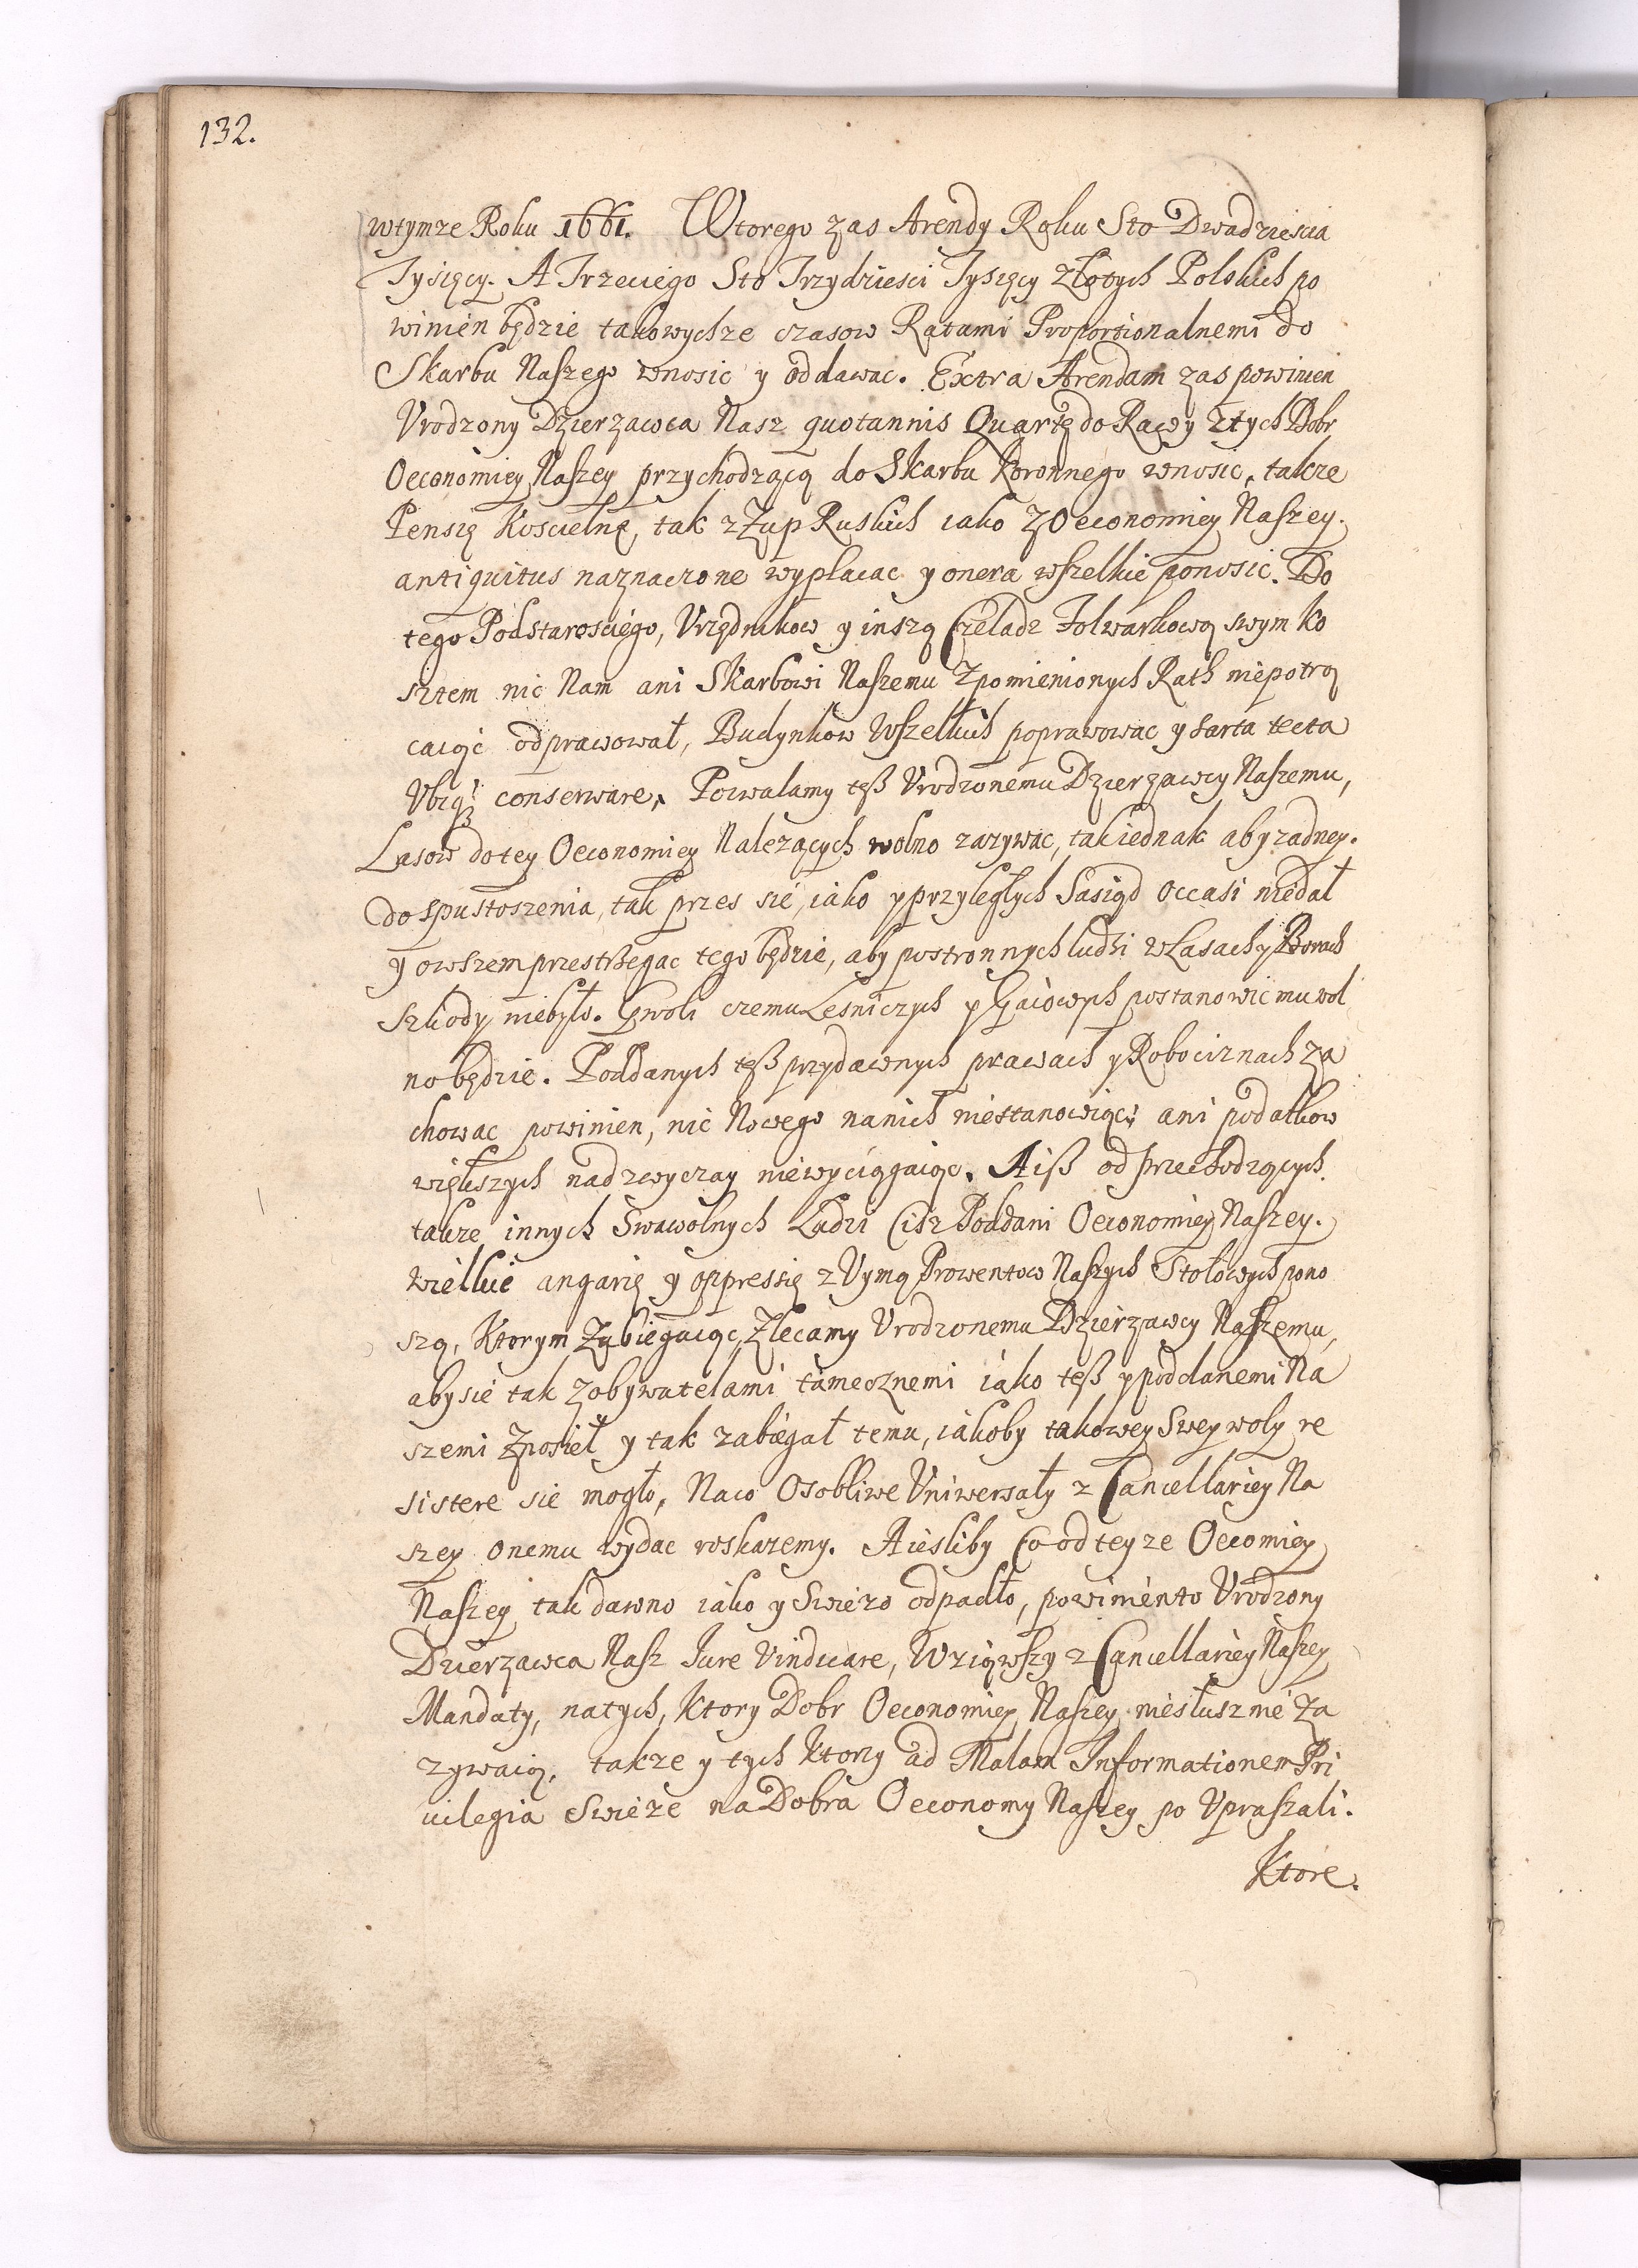 132.
wtymze Roku 1661. Wtorego zas Arendy Roku Sto Dwadziescia
Tysięcy. A Trzeciego Sto Trzydziesci Tysięcy złotych Polskich po
winien będzie takowychze czasow Ratami Proportionalnemi do
Skarbu Naszego wnosic y oddawac. Extra Arendam zas powinien
Vrodzony Dzierzawca Nasz quotannis Quartę do Rawy ztych Dobr
Oeconomiey Naszey przychodzącą do Skarbu Koronnego wnosic, takze
Pensię Koscielnę, tak z Zup Ruskich iako z Oeconomiey Naszey.
antiquitus naznaczone wypłacac y onera wszelkie ponosic. Do
tego Podstarosciego, Vrzędnikow y inszą Czeladz Folwarkową swym ko
sztem nic Nam ani Skarbowi Naszemu z pomienionych Rath niepotrą
caiąc odprawował, Budynkow Wszelkich poprawowac y sarta tecta
Vbiq; conservare, Pozwalamy teß Vrodzonemu Dzierzawcy Naszemu,
Lasow dotey Oeconomiey Nalezących wolno zazywac, takiednak abyzadney.
do spustoszenia, tak przes się, iako y przyległych Sasiąd occasi niedał
y owszem przestrzegac tego będzie, aby postronnych ludzi w Lasach y Borach
szkody niebyło. Gwoli czemu Lesniczych y Gaiowych postanowic mu wol
no będzie. Poddanych teß przydawnych prawach y Robociznach za
chowac powinien, nic Nowego nanich niestanowiąc, ani podatkow
większych nadzwyczay niewyciągaiąc. A iß od przechodzących.
takze innych Swawolnych Ludzi Ciz Poddani Oeconomiey Naszey.
wielkie angarię y oppressię z Vymą Prowentow Naszych Stołowych pono
szą, Ktorym Zabiegaiąc, Zlecamy Vrodzonemu Dzierzawcy Naszemu,
aby sie tak z obywatelami tamecznemi iako teß y poddanemi Na
szemi Znosił y tak zabiegał temu, iakoby takowey Swey woly re
sistere sie mogło, Naco Osobliwe Vniwersały z Cancellariey Na
szey onemu wydac roskazemy. A iesliby Co od teyze Oecomiey
Naszey tak dawno iako y Swiezo odpadło, powinien to Vrodzony
Dzierzawca Nasz Iure Vindicare, Wziąwszy z Cancellariey Naszey
Mandaty, natych, Ktory Dobr Oeconomiey Naszey niesłusznie Za
zywaią, takze y tych ktorzy ad Malam Informationem Pri
vilegia Swieze na Dobra Oeconomy Naszey po Vpraszali.
Ktore.